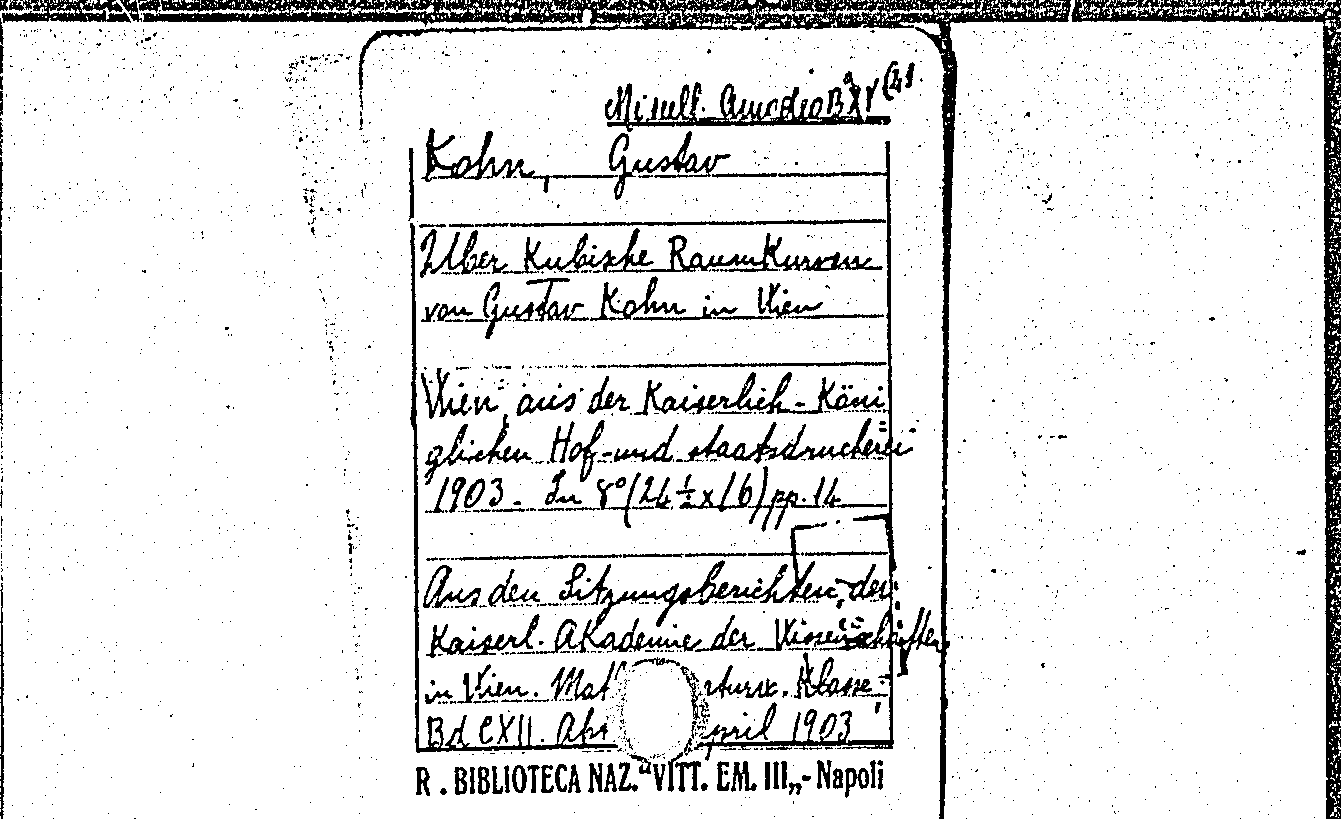 Miscell. Amodeo B XV (41
Kohn, Gustav
Über Kubische RaumKurven
von Gustav Kohn in Wien
Wien, aus der Kaiserlich-Köni
glichen Hof-und staatsdruckerei
1903 - In 8° (24 ½ x 16) pp. 14
Aus den Sitzungsberichten, der
Kaiserl. AKademie der Wissenschaften
in Wien. Mat turw. Klasse
Bd CXII. Ab pril 1903
R. BIBLIOTECA NAZ. "VITT. EM. III„-Napoli